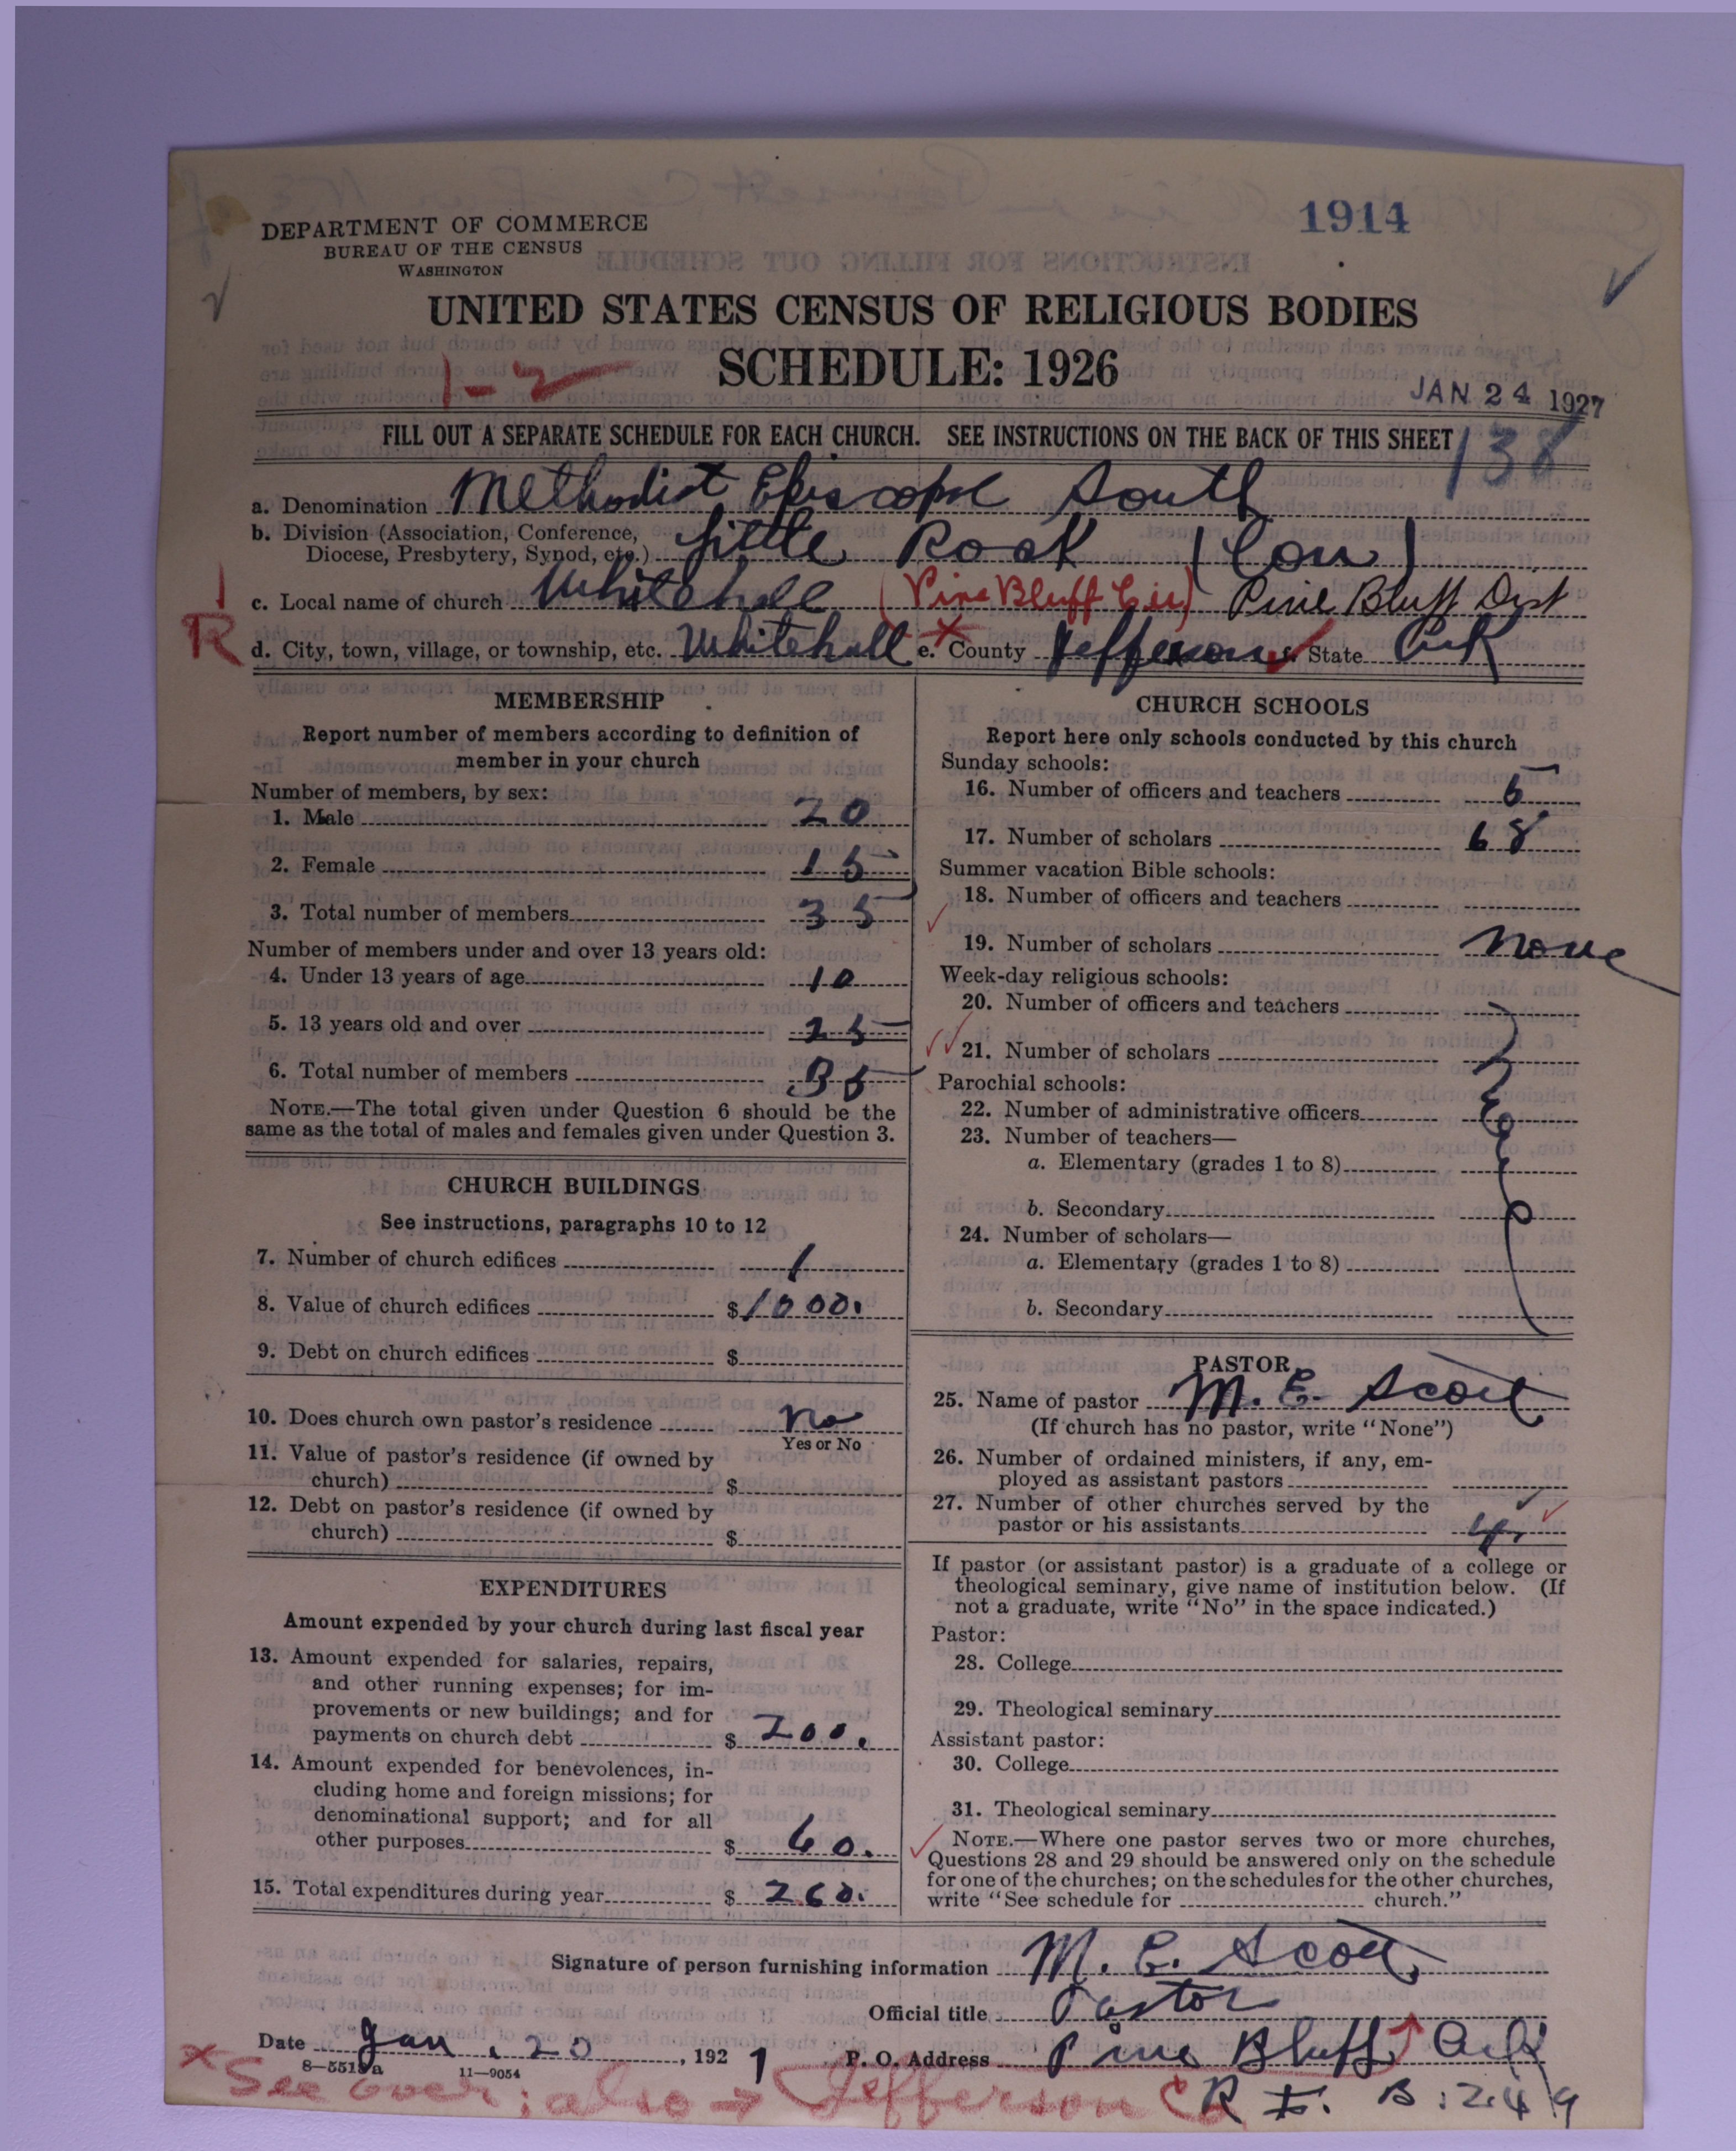 1914
DEPARTMENT OF COMMERCE
BUREAU OF THE CENSUS
WASHINGTON
UNITED STATES CENSUS OF RELIGIOUS BODIES
SCHEDULE: 1926
1-2
JAN 24 1927
FILL OUT A SEPARATE SCHEDULE FOR EACH CHURCH. SEE INSTRUCTIONS ON THE BACK OF THIS SHEET
138
a. Denomination Methodist Episcopal South
b. Division (Association, Conference, Diocese, Presbytery, Synod, etc.) Little Rock (Con)
c. Local name of church Whitehall (Pine Bluff Cir) Pine Bluff Dist
R d. City, town, village, or township, etc. Whitehall e. County Jefferson f. State Ark
MEMBERSHIP
Report number of members according to definition of
member in your church
Number of members, by sex:
1. Male 20
2. Female 15
3. Total number of members 35
Number of members under and over 13 years old:
4. Under 13 years of age 10
5. 13 years old and over 25
6. Total number of members 35
NOTE.—The total given under Question 6 should be the
same as the total of males and females given under Question 3.
CHURCH BUILDINGS
See instructions, paragraphs 10 to 12
7. Number of church edifices 1
8. Value of church edifices $1000.
9. Debt on church edifices $
10. Does church own pastor's residence No
Yes or No
11. Value of pastor's residence (if owned by
church) $
12. Debt on pastor's residence (if owned by
church) $
EXPENDITURES
Amount expended by your church during last fiscal year
13. Amount expended for salaries, repairs,
and other running expenses; for im-
provements or new buildings; and for
payments on church debt $ 200.
14. Amount expended for benevolences, in-
cluding home and foreign missions; for
denominational support; and for all
other purposes $ 60.
15. Total expenditures during year $ 260.
CHURCH SCHOOLS
Report here only schools conducted by this church
Sunday schools:
16. Number of officers and teachers 5
17. Number of scholars 68
Summer vacation Bible schools:
18. Number of officers and teachers
19. Number of scholars none
Week-day religious schools:
20. Number of officers and teachers
21. Number of scholars
Parochial schools:
22. Number of administrative officers
23. Number of teachers—
a. Elementary (grades 1 to 8)
b. Secondary
24. Number of scholars—
a. Elementary (grades 1 to 8)
b. Secondary
PASTOR
25. Name of pastor M. E. Scott
(If church has no pastor, write "None")
26. Number of ordained ministers, if any, em-
ployed as assistant pastors
27. Number of other churches served by the
pastor or his assistants 4
If pastor (or assistant pastor) is a graduate of a college or
theological seminary, give name of institution below. (If
not a graduate, write "No" in the space indicated.)
Pastor:
28. College
29. Theological seminary
Assistant pastor:
30. College
31. Theological seminary
NOTE.—Where one pastor serves two or more churches,
Questions 28 and 29 should be answered only on the schedule
for one of the churches; on the schedules for the other churches,
write "See schedule for church."
Signature of person furnishing information M. E. Scott
Official title Pastor
Date Jan. 20, 1927 P. O. Address Pine Bluff Ark
8—5518a 11—9054
x See over; also → Jefferson Co
R B. 249